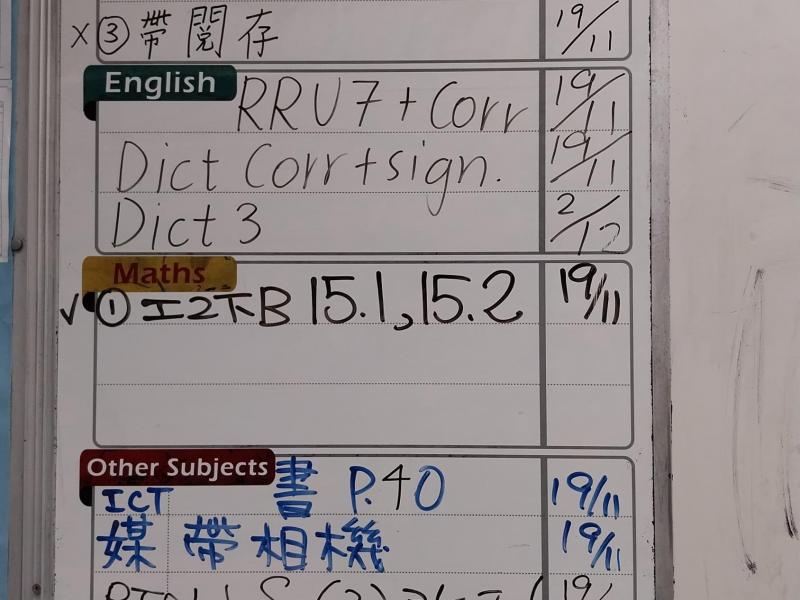 x ③ 帶 閱 存 19/11
English
RRU7 + Corr 19/11
Dict Corr + sign. 19/11
Dict 3 2/12
Maths
✓ ① 工2下B 15.1, 15.2 19/11
Other Subjects
ICT 書 P.40 19/11
媒 帶相機 19/11
19/